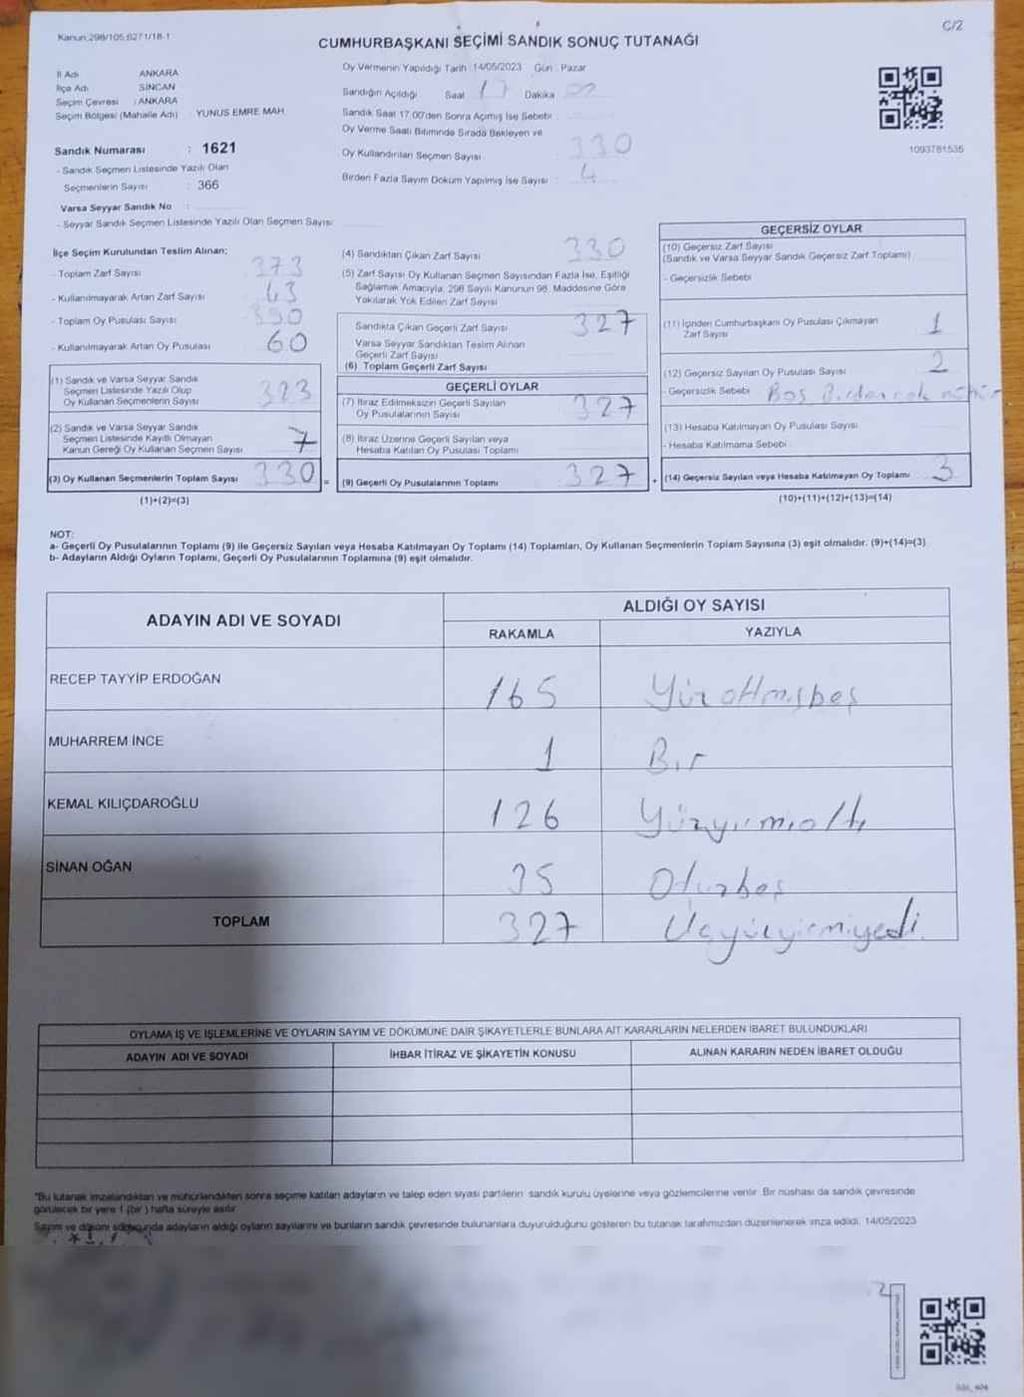 Kanun:298/105:6271/18-1
C/2
CUMHURBAŞKANI SEÇİMİ SANDIK SONUÇ TUTANAĞI
İl Adı ANKARA
İlçe Adı SİNCAN
Seçim Çevresi : ANKARA
Seçim Bölgesi (Mahalle Adı) YUNUS EMRE MAH
Sandık Numarası : 1621
- Sandık Seçmen Listesinde Yazılı Olan
Seçmenlerin Sayısı : 366
Varsa Seyyar Sandık No :
- Seyyar Sandık Seçmen Listesinde Yazılı Olan Seçmen Sayısı
Oy Vermenin Yapıldığı Tarih : 14/05/2023 Gün : Pazar
Sandığın Açıldığı Saat 17 Dakika 00
Sandık Saat 17.00'den Sonra Açılmış İse Sebebi :
Oy Verme Saati Bitiminde Sırada Bekleyen ve
Oy Kullandırılan Seçmen Sayısı : 330
Birden Fazla Sayım Döküm Yapılmış İse Sayısı : 4
1093781535
İlçe Seçim Kurulundan Teslim Alınan;
- Toplam Zarf Sayısı 373
- Kullanılmayarak Artan Zarf Sayısı 43
- Toplam Oy Pusulası Sayısı 390
- Kullanılmayarak Artan Oy Pusulası 60
(1) Sandık ve Varsa Seyyar Sandık
Seçmen Listesinde Yazılı Olup
Oy Kullanan Seçmenlerin Sayısı 323
(2) Sandık ve Varsa Seyyar Sandık
Seçmen Listesinde Kayıtlı Olmayan
Kanun Gereği Oy Kullanan Seçmen Sayısı 7
(3) Oy Kullanan Seçmenlerin Toplam Sayısı 330 =
(1)+(2)=(3)
(4) Sandıktan Çıkan Zarf Sayısı 330
(5) Zarf Sayısı Oy Kullanan Seçmen Sayısından Fazla İse, Eşitliği
Sağlamak Amacıyla, 298 Sayılı Kanunun 98. Maddesine Göre
Yakılarak Yok Edilen Zarf Sayısı
Sandıkta Çıkan Geçerli Zarf Sayısı 327
Varsa Seyyar Sandıktan Teslim Alınan
Geçerli Zarf Sayısı
(6) Toplam Geçerli Zarf Sayısı
GEÇERLİ OYLAR
(7) İtiraz Edilmeksizin Geçerli Sayılan
Oy Pusulalarının Sayısı 327
(8) İtiraz Üzerine Geçerli Sayılan veya
Hesaba Katılan Oy Pusulası Toplamı
(9) Geçerli Oy Pusulalarının Toplamı 327 +
GEÇERSİZ OYLAR
(10) Geçersiz Zarf Sayısı
(Sandık ve Varsa Seyyar Sandık Geçersiz Zarf Toplamı)
- Geçersizlik Sebebi
(11) İçinden Cumhurbaşkanı Oy Pusulası Çıkmayan
Zarf Sayısı 1
(12) Geçersiz Sayılan Oy Pusulası Sayısı 2
- Geçersizlik Sebebi Boş Birden çok mühür
(13) Hesaba Katılmayan Oy Pusulası Sayısı
- Hesaba Katılmama Sebebi
(14) Geçersiz Sayılan veya Hesaba Katılmayan Oy Toplamı 3
(10)+(11)+(12)+(13)=(14)
NOT:
a- Geçerli Oy Pusulalarının Toplamı (9) ile Geçersiz Sayılan veya Hesaba Katılmayan Oy Toplamı (14) Toplamları, Oy Kullanan Seçmenlerin Toplam Sayısına (3) eşit olmalıdır. (9)+(14)=(3)
b- Adayların Aldığı Oyların Toplamı, Geçerli Oy Pusulalarının Toplamına (9) eşit olmalıdır.
ADAYIN ADI VE SOYADI
ALDIĞI OY SAYISI
RAKAMLA YAZIYLA
RECEP TAYYİP ERDOĞAN 165 Yüzatmışbeş
MUHARREM İNCE 1 Bir
KEMAL KILIÇDAROĞLU 126 Yüzyirmialtı
SİNAN OĞAN 35 Otuzbeş
TOPLAM 327 Üçyüzyirmiyedi
OYLAMA İŞ VE İŞLEMLERİNE VE OYLARIN SAYIM VE DÖKÜMÜNE DAİR ŞİKAYETLERLE BUNLARA AİT KARARLARIN NELERDEN İBARET BULUNDUKLARI
ADAYIN ADI VE SOYADI İHBAR İTİRAZ VE ŞİKAYETİN KONUSU ALINAN KARARIN NEDEN İBARET OLDUĞU
"Bu tutanak imzalandıktan ve mühürlendikten sonra seçime katılan adayların ve talep eden siyasi partilerin sandık kurulu üyelerine veya gözlemcilerine verilir. Bir nüshası da sandık çevresinde
görülecek bir yere 1 (bir) hafta süreyle asılır
Sayım ve döküm sonucunda adayların aldığı oyların sayılarını ve bunların sandık çevresinde bulunanlara duyurulduğunu gösteren bu tutanak tarafımızdan düzenlenerek imza edildi. 14/05/2023